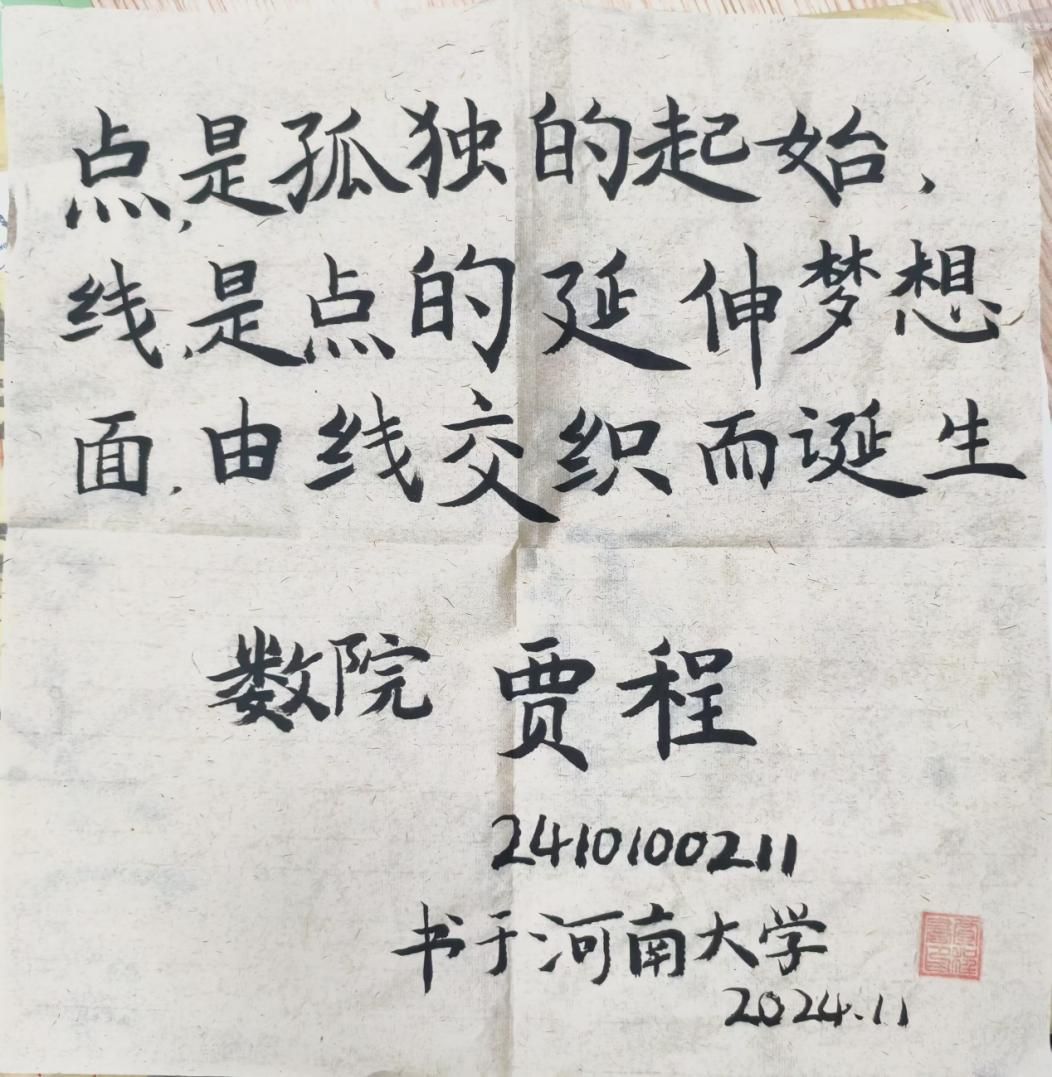 点,是孤独的起始,
线,是点的延伸梦想
面,由线交织而诞生
数院 贾程
2410100211
书于河南大学
2024.11